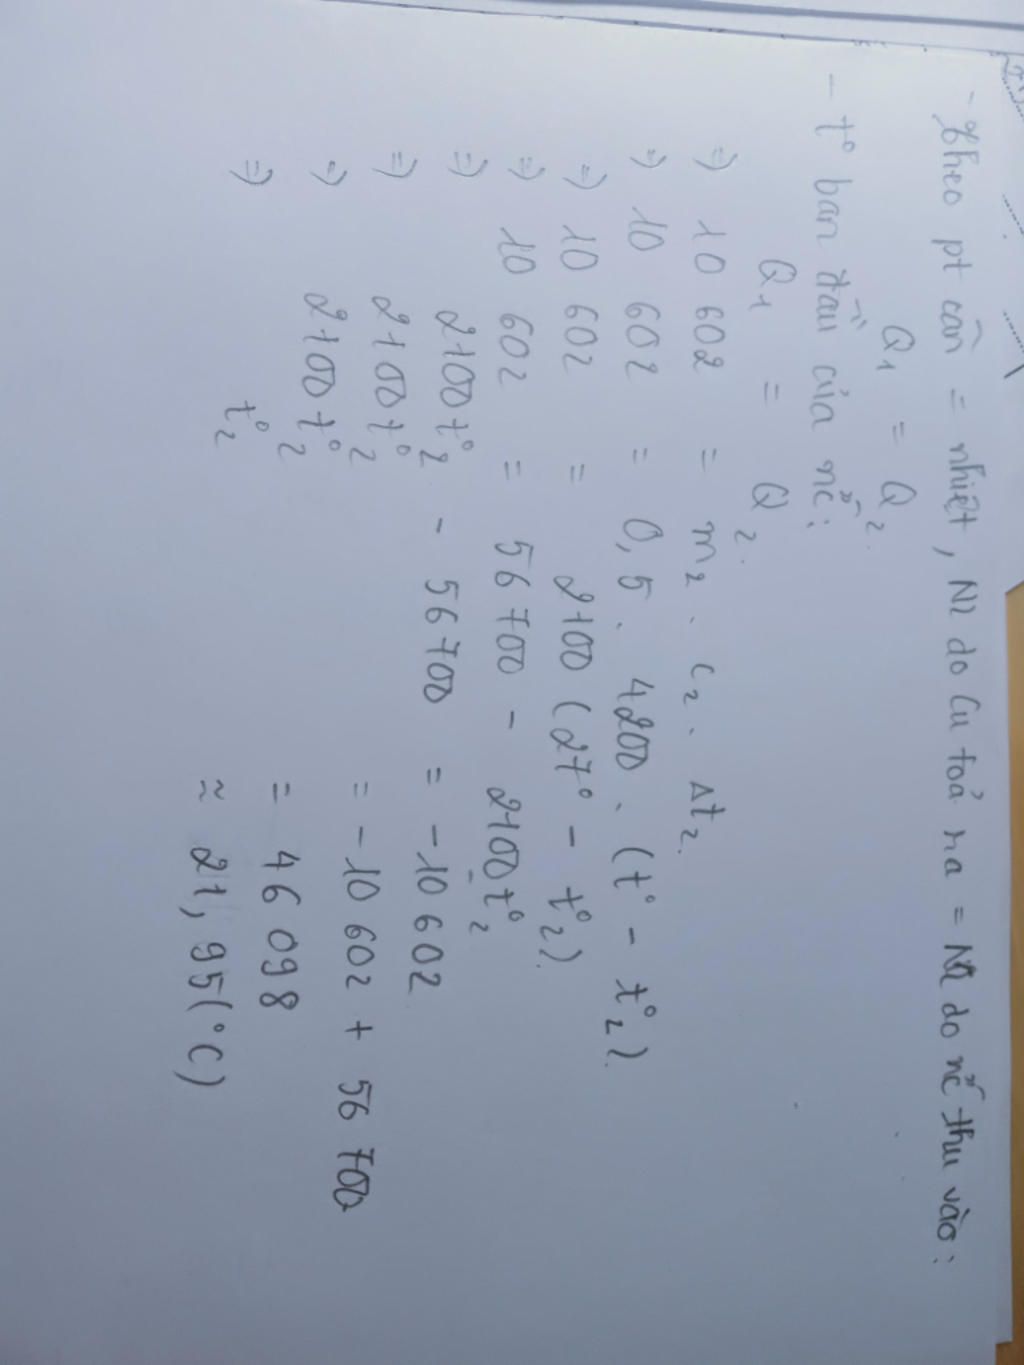 - Theo pt cần = nhiệt, NL do Cu toả ra = NL do nc̃ thu vào:
Q₁ = Q₂.
- t° ban đầu của nc̃:
Q₁ = Q₂.
=> 10 602 = m₂ . c₂ . Δt₂.
=> 10 602 = 0,5 . 4200 . (t° - t°₂).
=> 10 602 = 2100 (27° - t°₂).
=> 10 602 = 56 700 - 2100t°₂
=> 2100t°₂ - 56 700 = -10 602
=> 2100t°₂ = -10 602 + 56 700
=> 2100t°₂ = 46 098
=> t°₂ ≈ 21,95(°C)